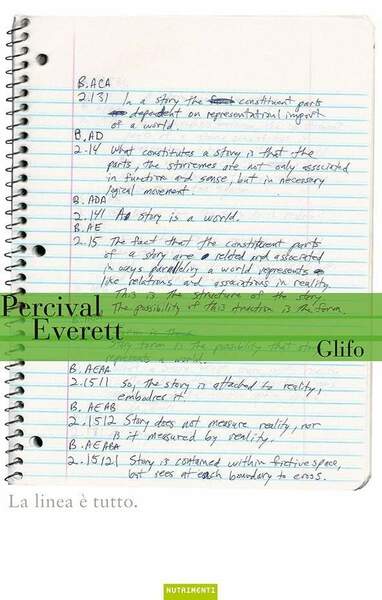 B.ACA
2.131 In a story the constituent parts
are dependent on representational import
of a world.
B.AD
2.14 What constitutes a story is that the
parts, the storremes are not only associated
in function and sense, but in necessary
logical movement.
B.ADA
2.141 A story is a world.
B.AE
2.15 The fact that the constituent parts
of a story are related and associated
in ways paralleling a world represents
like relations and associations in reality.
This is the structure of the story.
The possibility of this structure is the form.
Percival
Everett
Glifo
B.AEAA
2.1511 So, the story is attached to reality,
embodies it.
B.AEAB
2.1512 Story does not measure reality, nor
is it measured by reality.
B.AEABA
2.15121 Story is contained within fictive space,
but sees at each boundary to cross.
La linea è tutto.
NUTRIMENTI